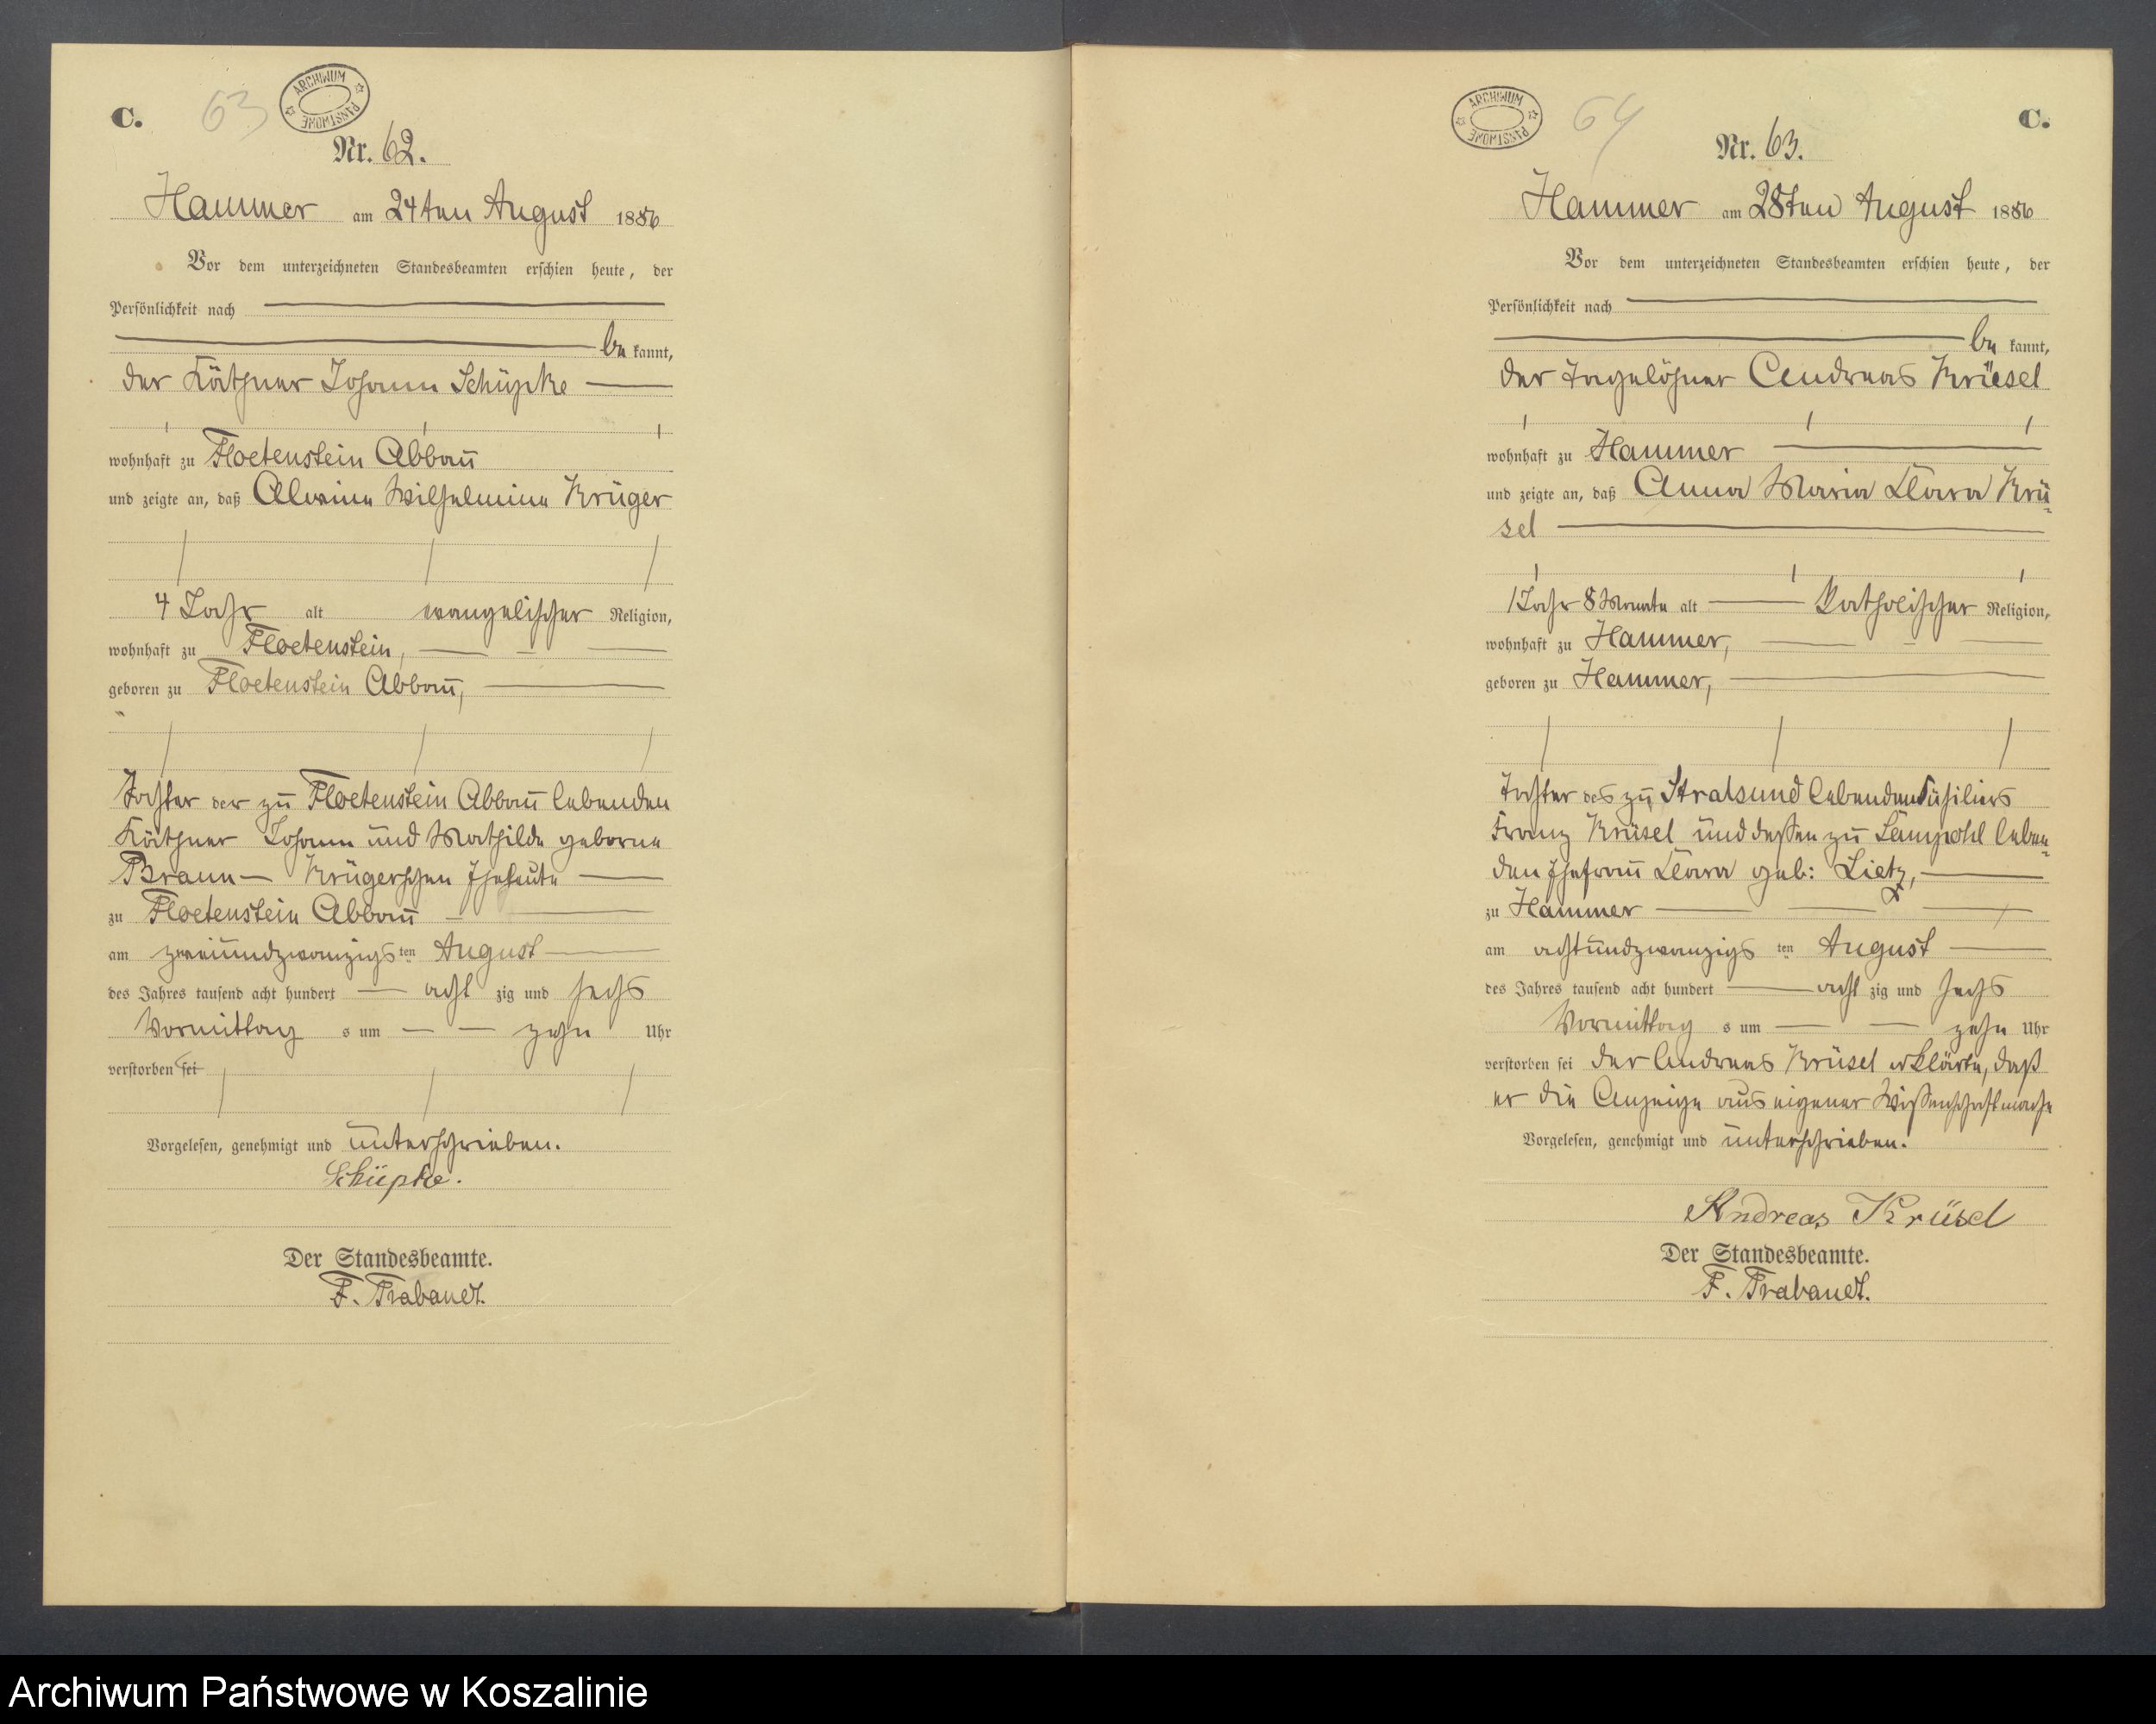 C.
63
ARCHIWUM PAŃSTWOWE
Nr. 62.
Hammer am 24ten August 1886
Vor dem unterzeichneten Standesbeamten erschien heute, der
Persönlichkeit nach
be kannt,
der Käthner Johann Schüpke
wohnhaft zu Floetenstein Abbau
und zeigte an, daß Alwine Wilhelmine Krüger
4 Jahr alt evangelischer Religion,
wohnhaft zu Floetenstein,
geboren zu Floetenstein Abbau,
Tochter der zu Floetenstein Abbau lebenden
Käthner Johann und Mathilde geborne
Braun – Krügerschen Eheleute
zu Floetenstein Abbau
am zweiundzwanzigs ten August
des Jahres tausend acht hundert acht zig und sechs
Vormittag s um zehn Uhr
verstorben sei
Vorgelesen, genehmigt und unterschrieben.
Schüpke.
Der Standesbeamte.
F. Trabandt.
ARCHIWUM PAŃSTWOWE
64
C.
Nr. 63.
Hammer am 28ten August 1886
Vor dem unterzeichneten Standesbeamten erschien heute, der
Persönlichkeit nach
be kannt,
der Tagelöhner Andreas Krüesel
wohnhaft zu Hammer
und zeigte an, daß Anna Maria Clara Krü-
sel
1 Jahr 8 Monate alt katholischer Religion,
wohnhaft zu Hammer,
geboren zu Hammer,
Tochter des zu Stralsund lebenden Füsiliers
Franz Krüsel und dessen zu Sampohl leben-
den Ehefrau Clara geb: Lietz,
zu Hammer
am achtundzwanzigs ten August
des Jahres tausend acht hundert acht zig und sechs
Vormittag s um zehn Uhr
verstorben sei der Andreas Krüsel erklärte, daß
er die Anzeige aus eigener Wissenschaft mache
Vorgelesen, genehmigt und unterschrieben.
Andreas Krüsel
Der Standesbeamte.
F. Trabandt.
Archiwum Państwowe w Koszalinie